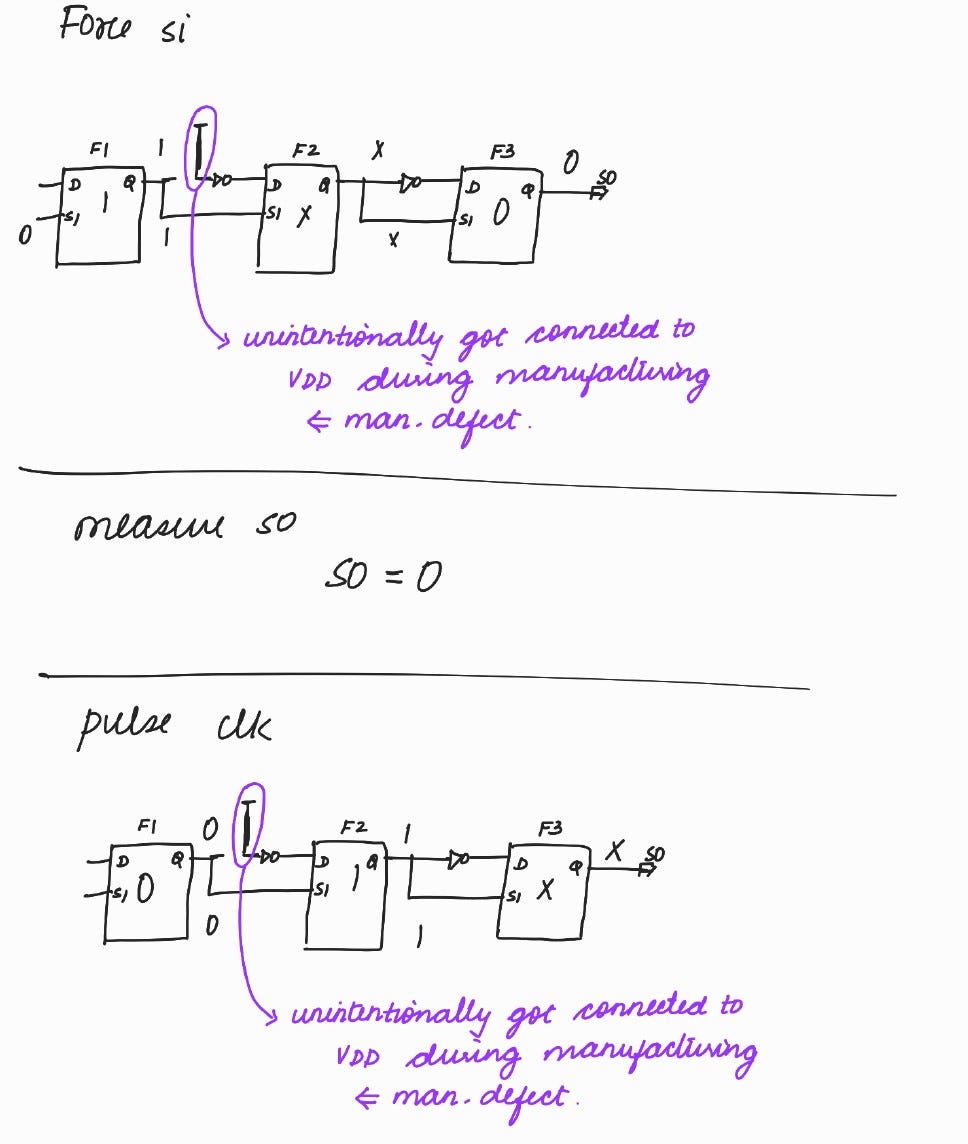 Force si
F1 1 F2 X F3 0 SO
D Q D Q D Q
SI 1 SI X SI 0
0 1 X
unintentionally got connected to
VDD during manufacturing
⇐ man. defect.
measure so
SO = 0
pulse clk
F1 0 F2 1 F3 X SO
D Q D Q D Q
SI 0 SI 1 SI X
0 1
unintentionally got connected to
VDD during manufacturing
⇐ man. defect.